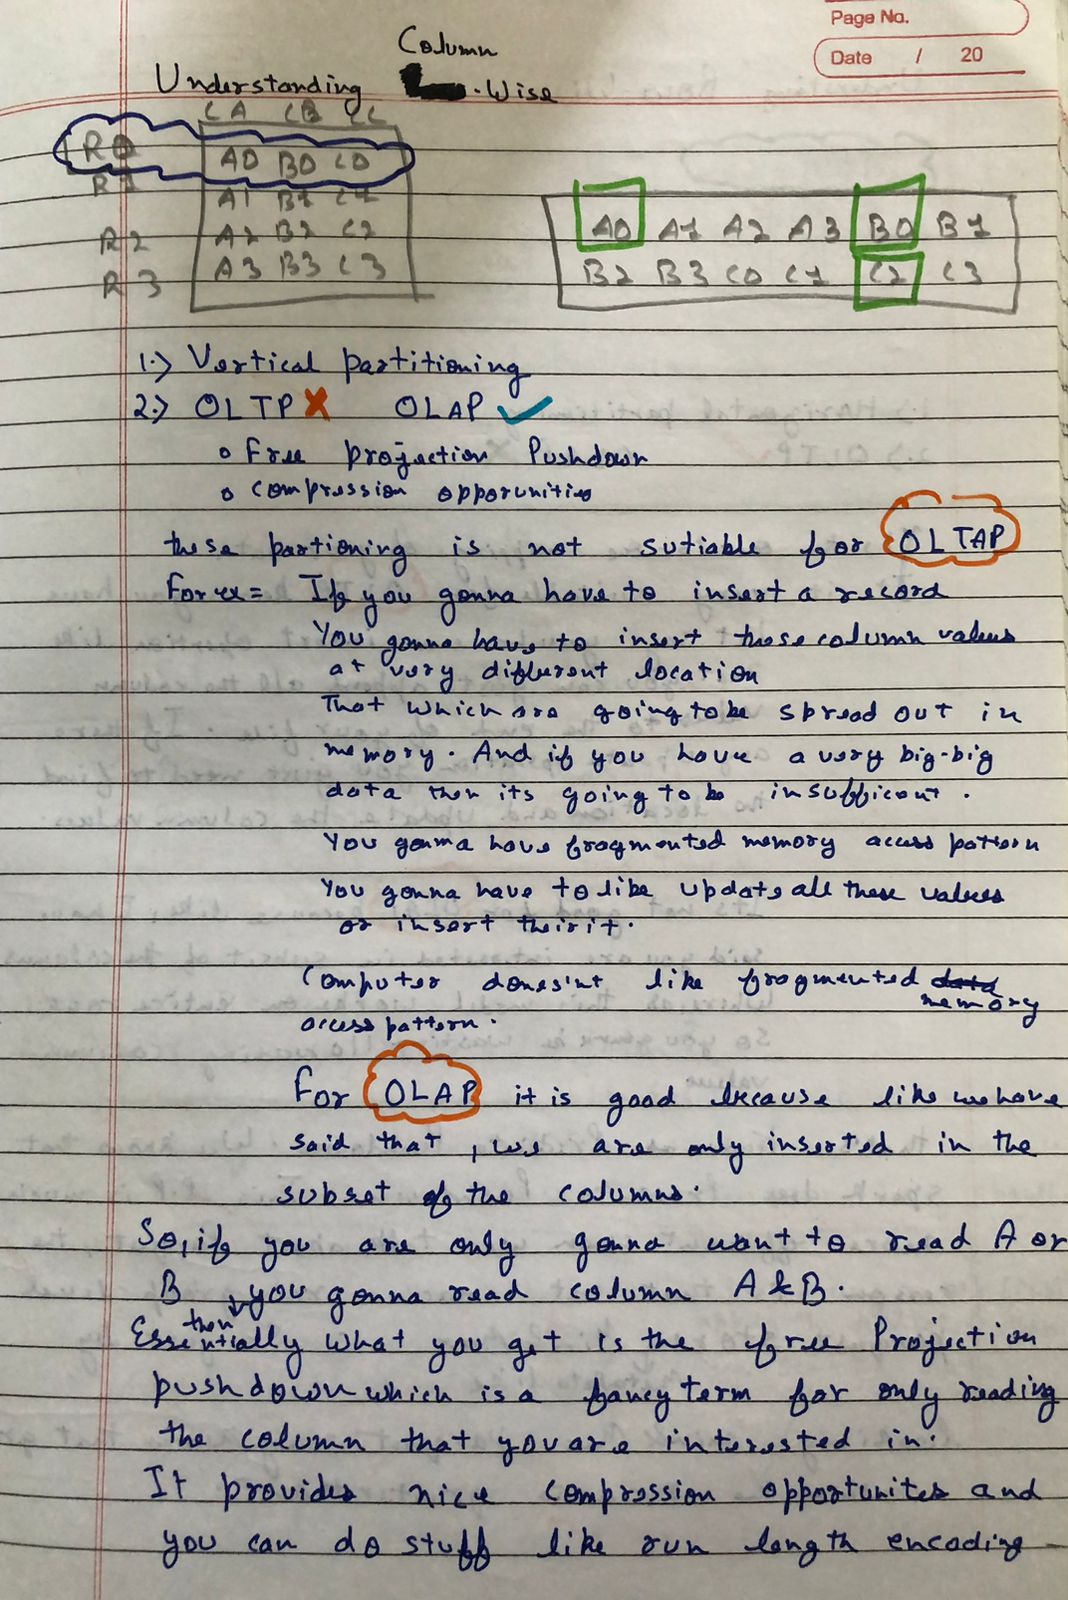 Page No.
Date / 20
Column
Understanding -Wise
CA CB CC
R0 A0 B0 C0
R1 A1 B1 C1
R2 A2 B2 C2
R3 A3 B3 C3
A0 A1 A2 A3 B0 B1
B2 B3 C0 C1 C2 C3
1.) Vertical partitioning
2.) OLTP ✗ OLAP ✓
o Free projection Pushdown
o Compression opporunities
these partioning is not sutiable for OLTAP
For ex = If you gonna have to insert a record
You gonna have to insert those column values
at very different location
That which are going to be spread out in
memory. And if you have a very big-big
data then its going to be insufficant.
You gonma have fragmented memory access pattern
You gonna have to like update all these values
or insert theirit.
Computer donesint like fragmented data memory
access pattern.
For OLAP it is good because like we have
said that, we are only inserted in the
subset of the columns.
So, if you are only gonna want to read A or
B then you gonna read column A & B.
Essentially what you get is the free Projection
pushdown which is a fancy term for only reading
the column that you are interested in.
It provides nice compression opportunites and
you can do stuff like run length encoding